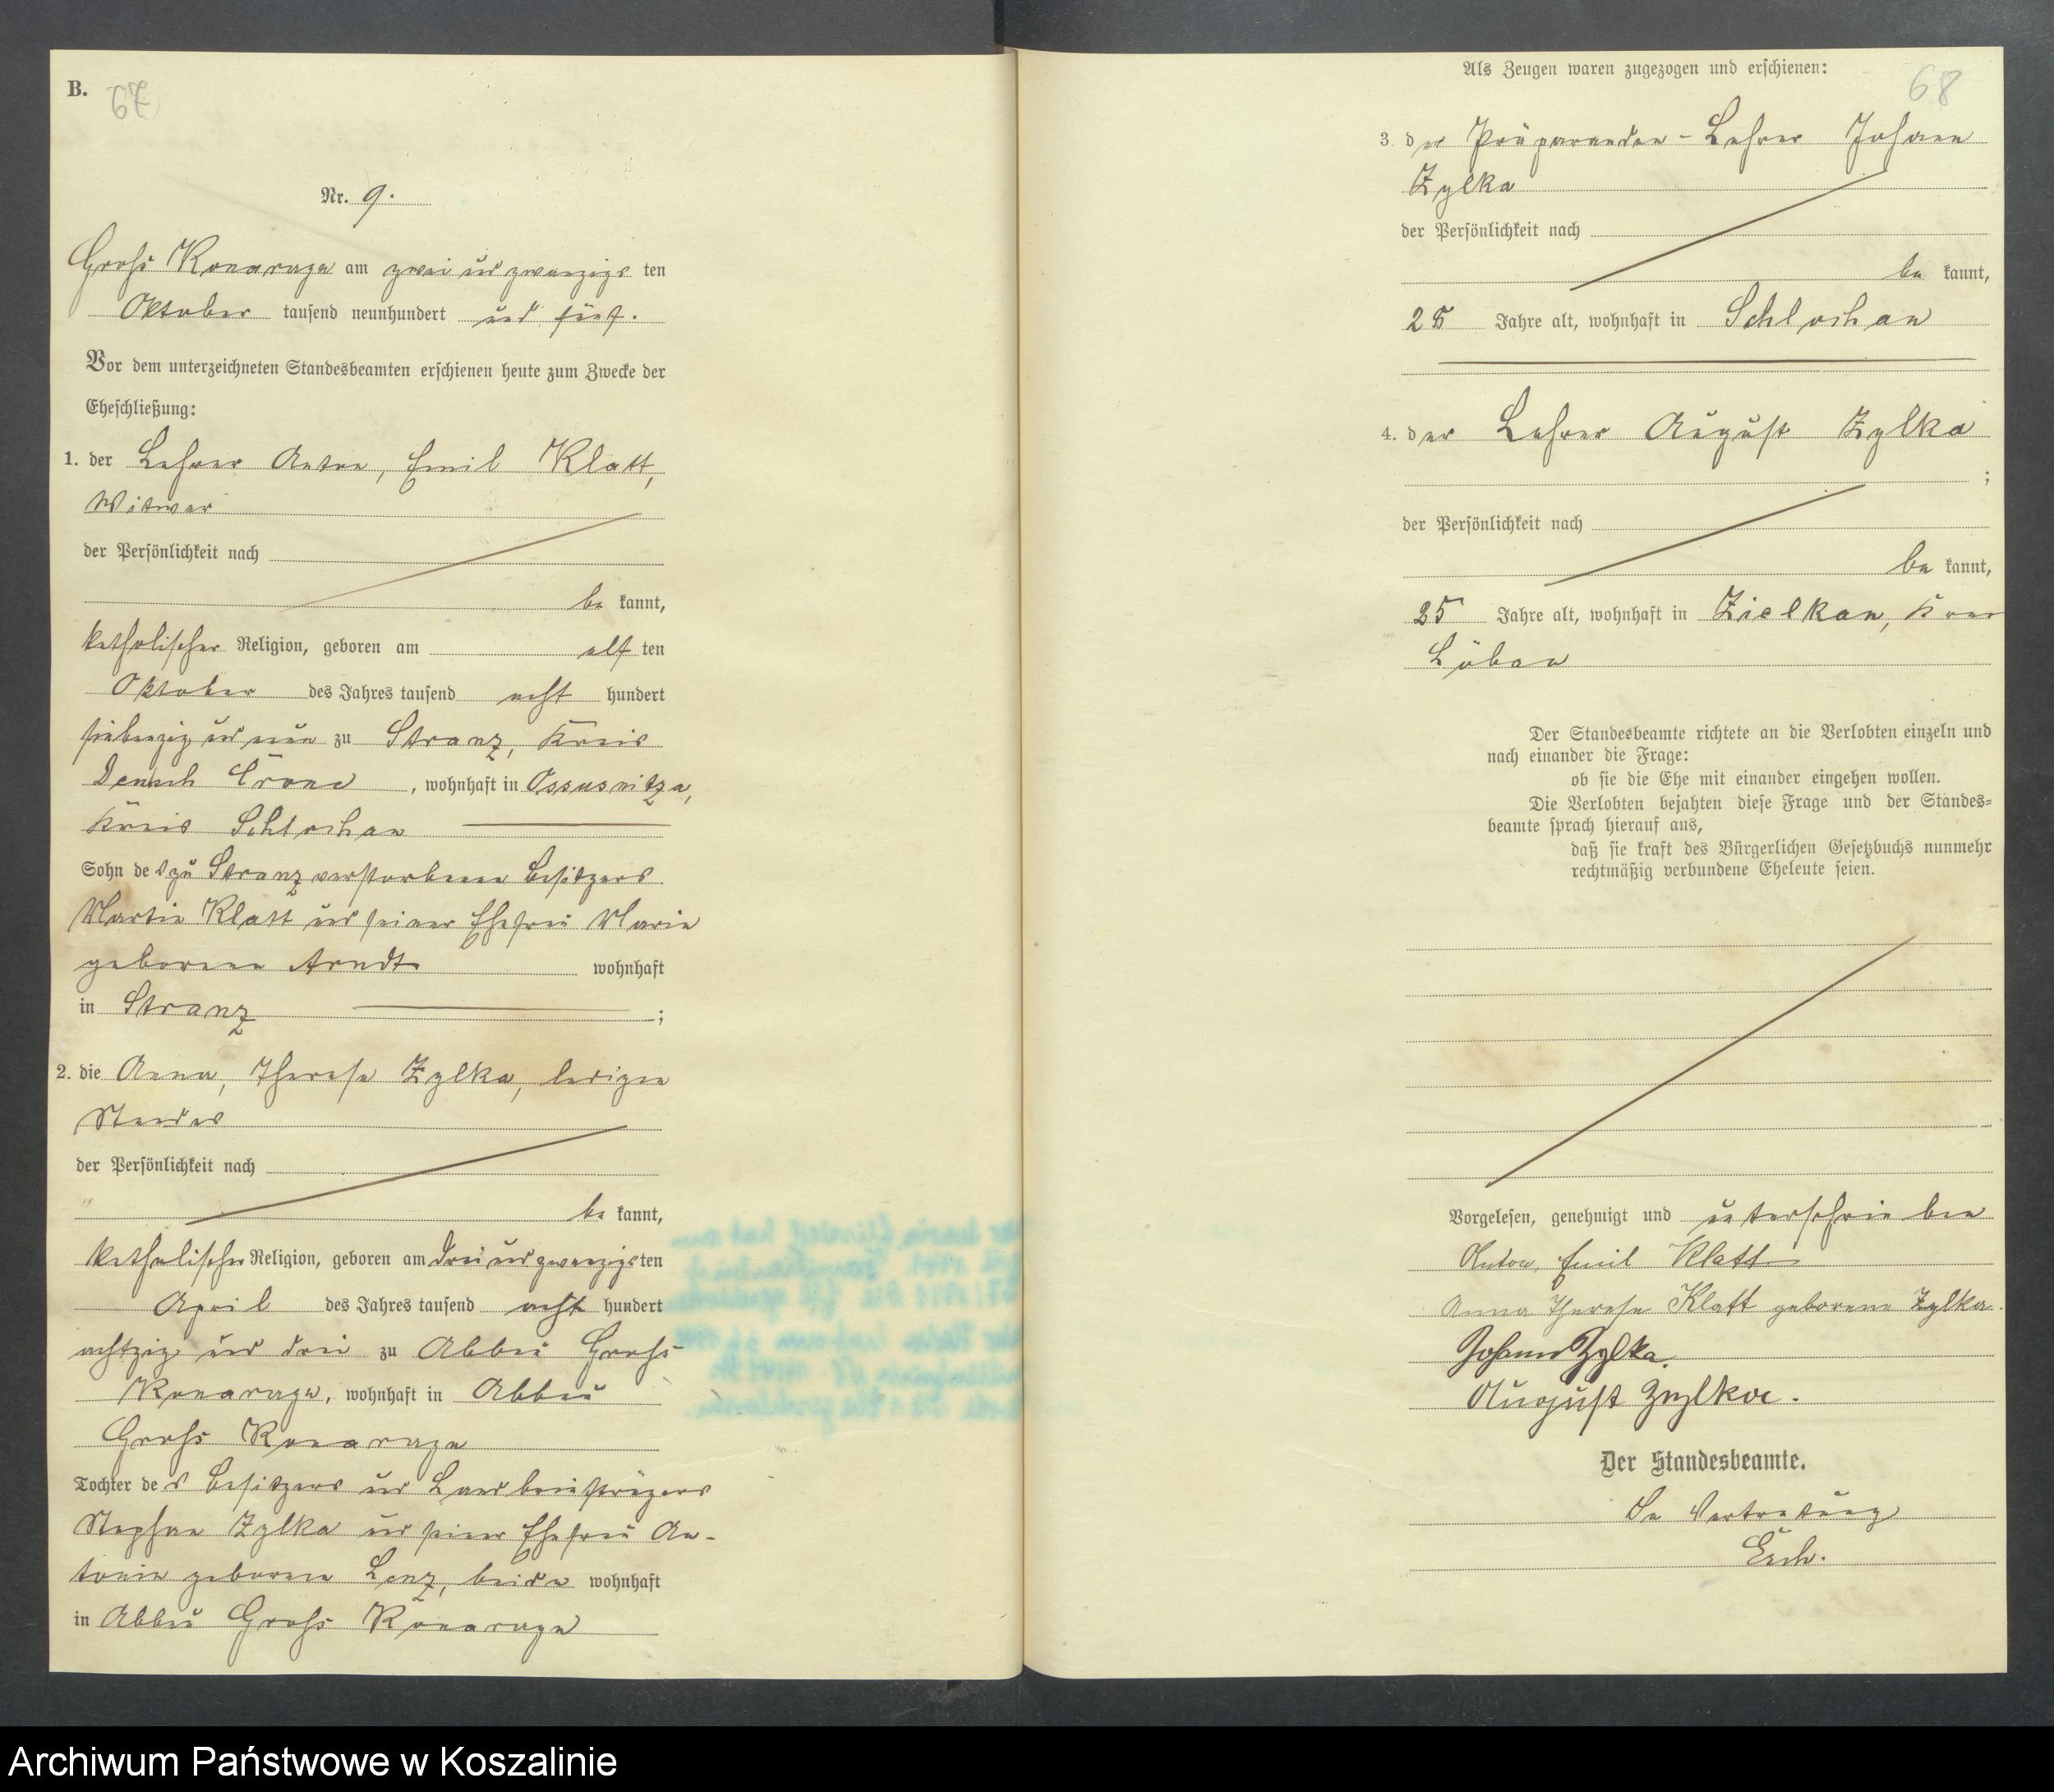 B.
67
Nr. 9.
Groß Konarczyn am zwei und zwanzigs ten
Oktober tausend neunhundert und fünf.
Vor dem unterzeichneten Standesbeamten erschienen heute zum Zwecke der
Eheschließung:
1. der Lehrer Anton, Emil Klatt,
Witwer
der Persönlichkeit nach
be kannt,
katholischer Religion, geboren am elf ten
Oktober des Jahres tausend acht hundert
siebenzig und neun zu Stranz, Kreis
Deutsch Crone, wohnhaft in Ossusnitza,
Kreis Schlochau
Sohn des zu Stranz verstorbenen Besitzers
Martin Klatt und seiner Ehefrau Marie
geborene Arndt wohnhaft
in Stranz ;
2. die Anna, Therese Zylka, ledigen
Standes
der Persönlichkeit nach
be kannt,
katholischer Religion, geboren am drei und zwanzigs ten
April des Jahres tausend acht hundert
achtzig und drei zu Abbau Groß
, wohnhaft in Abbau
Groß
Tochter des Besitzers und Landbriefträgers
Stephan Zylka und seiner Ehefrau An-
tonie geborene Lenz, beide wohnhaft
in Abbau Groß
Als Zeugen waren zugezogen und erschienen:
68
3. der Präparanden-Lehrer Johann
Zylka
der Persönlichkeit nach
be kannt,
Jahre alt, wohnhaft in Schlochau
4. der Lehrer August Zylka
;
der Persönlichkeit nach
be kannt,
25 Jahre alt, wohnhaft in Zielkau, Kreis
Löbau
Der Standesbeamte richtete an die Verlobten einzeln und
nach einander die Frage:
ob sie die Ehe mit einander eingehen wollen.
Die Verlobten bejahten diese Frage und der Standes=
beamte sprach hierauf aus,
daß sie kraft des Bürgerlichen Gesetzbuchs nunmehr
rechtmäßig verbundene Eheleute seien.
Vorgelesen, genehmigt und unterschrieben
Anton, Emil Klatt
Anna Therese Klatt geborene Zylka.
Johann Zylka.
August Zylka.
Der Standesbeamte.
In Vertretung
Archiwum Państwowe w Koszalinie